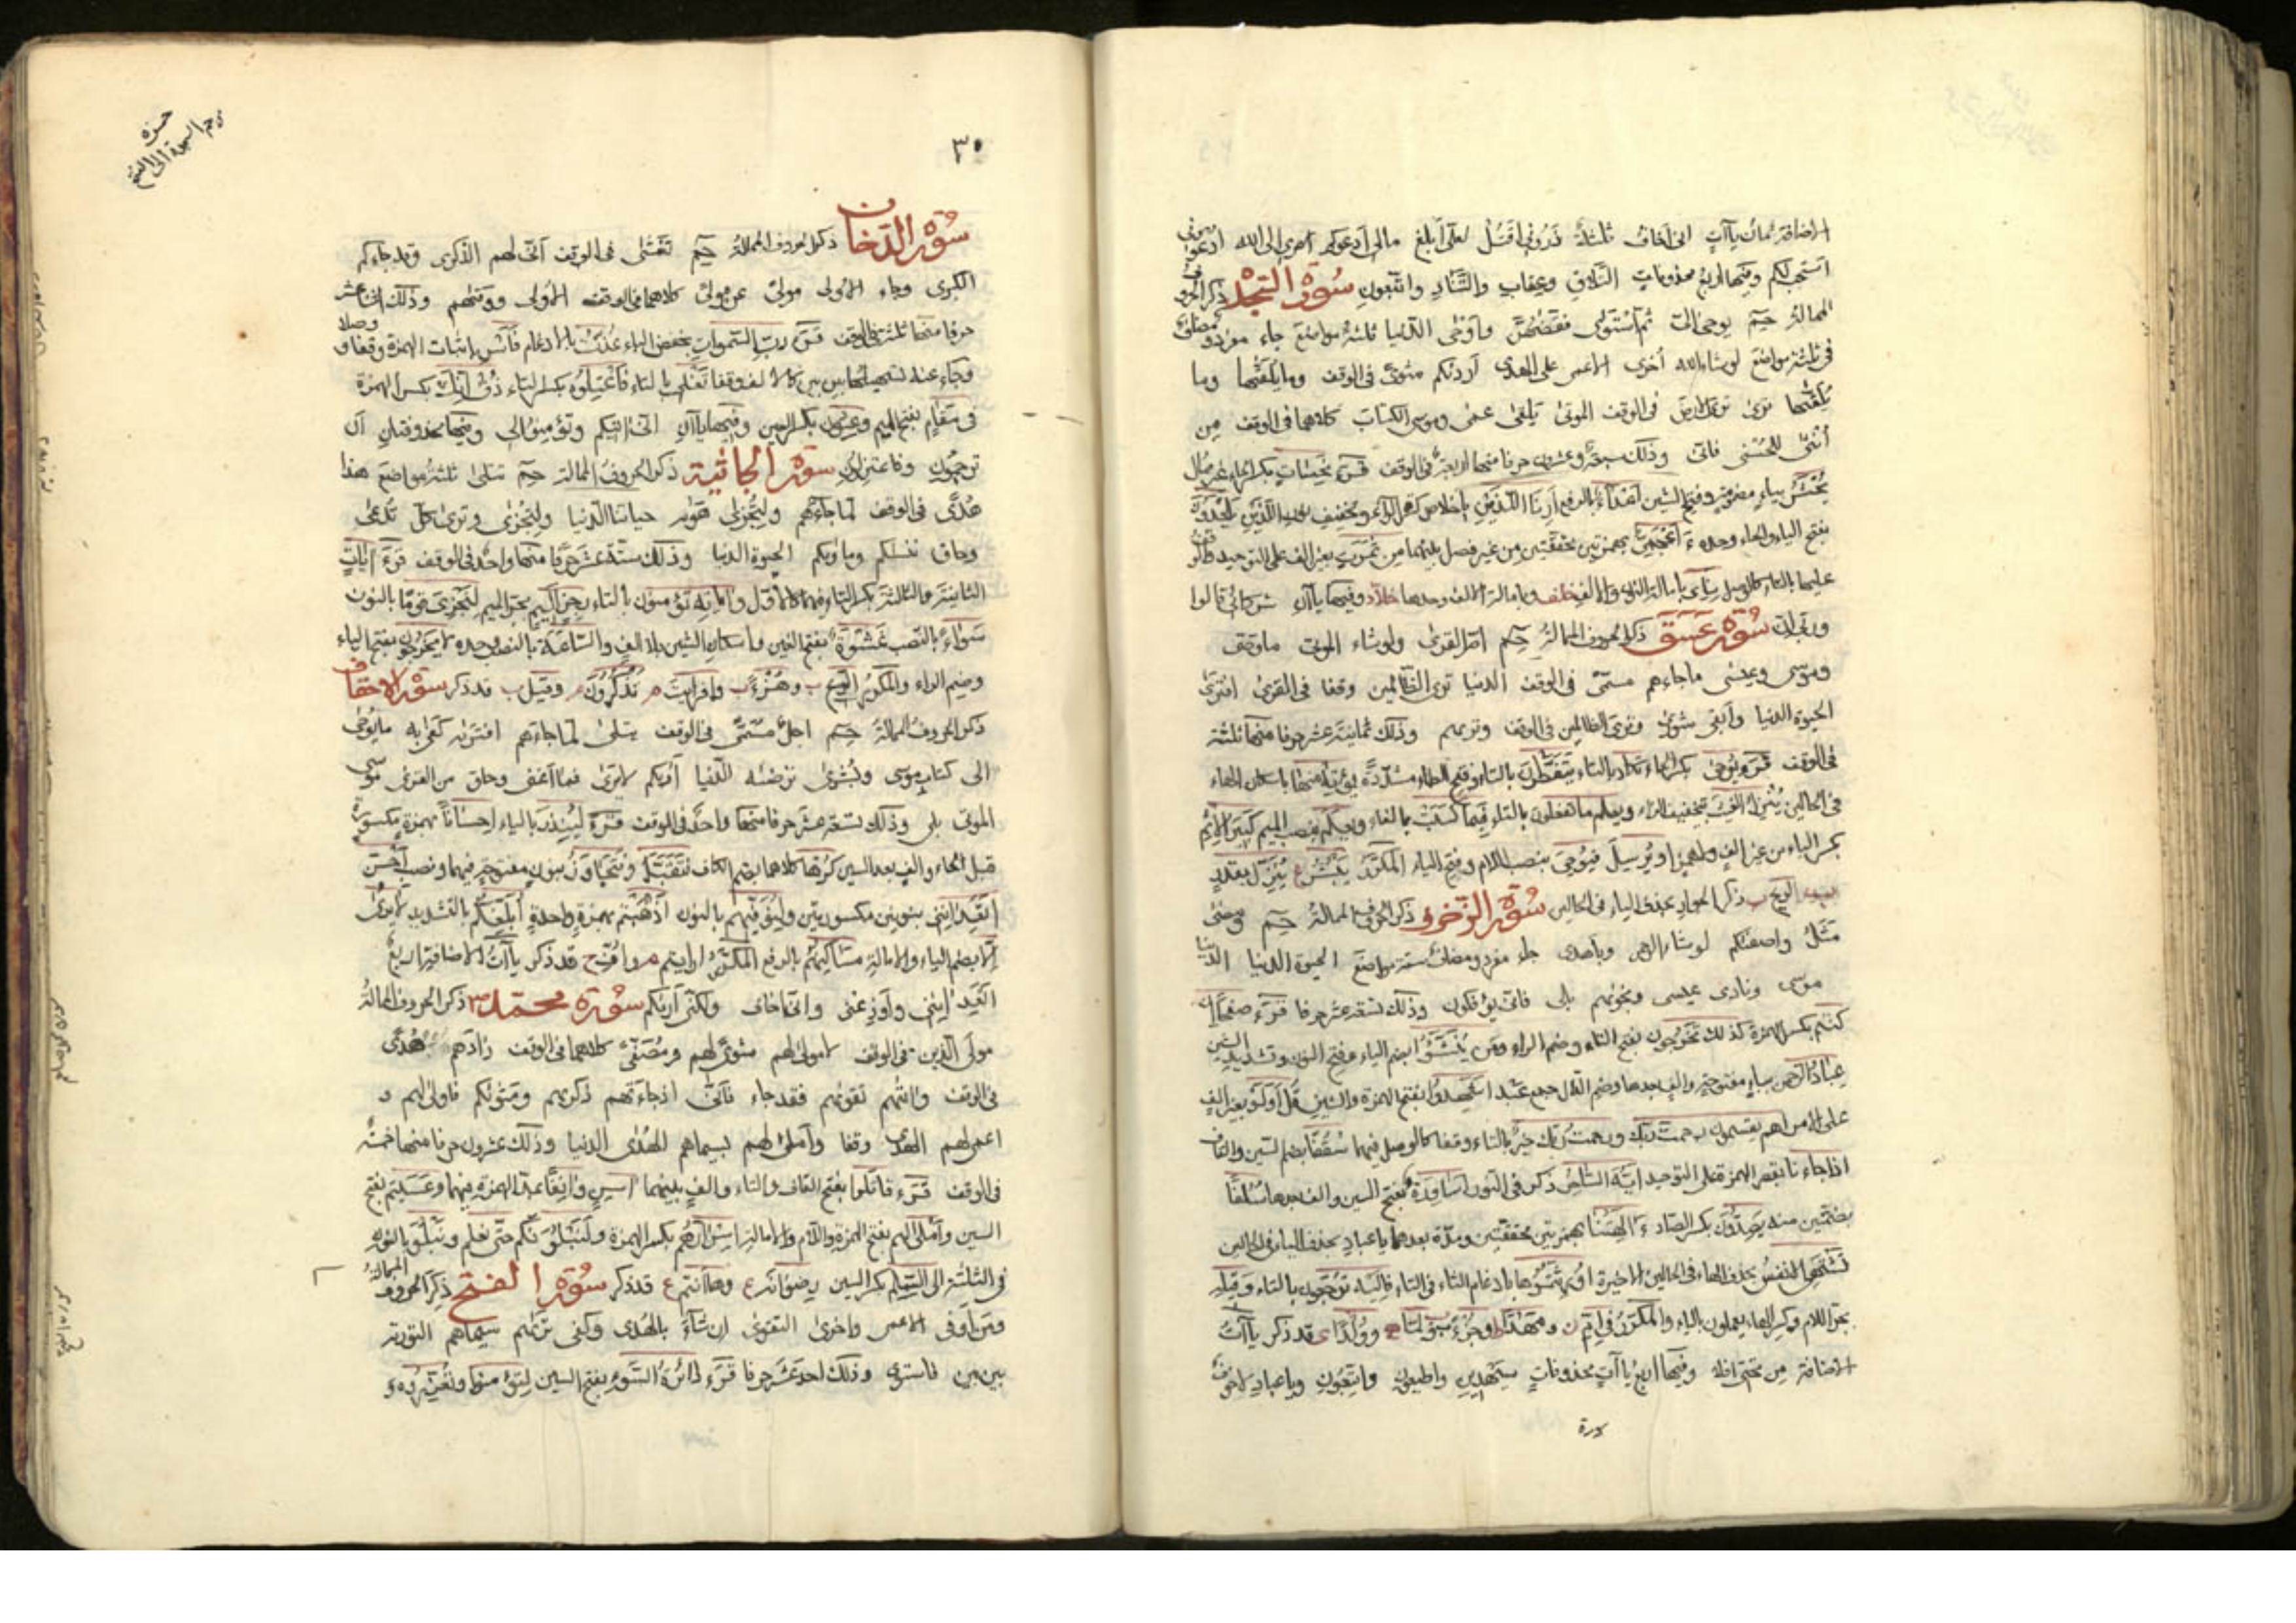 الاضافة ثمان ياآتٍ انى اخاف ثلثةٌ ذرونى اقتل لعلّى ابلغ مالى ادعوكم امرى الى الله ادعونى
استجب لكم وفيها اربع محذوفات التلاقِ وعقابِ والتنادِ واتبعونِ سورة السجدة ذكر الحروف
الممالة حم يوحى الىّ ثم استوى فقضٰهنّ واوحى الدنيا ثلثة مواضع جاء مفرد ومضاف
فى ثلثة مواضع لو شاء الله اخرى العمى على الهدى اردٰكم مثوىً فى الوقف وما يلقٰها وما
يلقٰها ترى ترى الارض فى الوقف الموتى يلقى عمىً وموسى الكتاب كلاهما فى الوقف من
انثى للحسنى فانى وذلك سبعة وعشرون حرفا منها اربعة فى الوقف قرئ نحِسات بكسر الحاء
يُحشر بياء مضمومة وفتح الشين اعداءُ بالرفع ارنا اللذين باخلاص كسر الراء وتخفيف نون اللذين يلحدون
بفتح الياء والحاء وحده ءاعجمى بهمزتين محققتين من غير فصل بينهما من ثمرت بغير الف على التوحيد
عليها بالتاء كالوصل ونأى بامالة النون والالف خلف وبامالة الالف وحدها خلاد وفيها ياآن شركائى قالوا
وربى ان سورة عسق ذكر الحروف الممالة حم ام القرى ولو شاء الموتى
وموسى وعيسى ما جاءهم مسمّى فى الوقف الدنيا ترى الظالمين وقفا فى القربى افترى
الحيوة الدنيا وابقى شورى وترى الظالمين فى الوقف وتريهم وذلك ثمانية عشر حرفا منها ثلثة
فى الوقف قرئ يوحى بكسر الحاء تكاد بالتاء يتفطّرن بالتاء وفتح الطاء مشددة نؤته منها باسكان الهاء
فى الحالين ينزل الغيث بتخفيف الزاء ويعلم ما تفعلون بالتاء فبما كسبت بالفاء ويعلم بنصب الميم كبير الاثم
بكسر الباء من غير الف ولا همز او يرسل فيوحى بنصب اللام وفتح الياء المكرّر يبشر ينزل بقدر
الريح ذكر الجوار بحذف الياء فى الحالين سورة الزخرف ذكر الحروف الممالة حم ومضى
مثل واصفٰكم لو شاء الرحمن وباهدى جاء مفرد ومضاف ستة مواضع الحيوة الدنيا الدنيا
موسى ونادى عيسى ونجوٰيهم بلى فانى يؤفكون وذلك تسعة عشر حرفا قرئ صفحا ان
كنتم بكسر الهمزة كذلك تخرجون بفتح التاء وضم الراء ومن ينشّؤا بضم الياء وفتح النون وتشديد الشين
عباد الرحمن بباء مفتوحة والف بعدها وضم الدال جمع عبد اشهدوا بفتح الهمزة والشين قل اولو بغير الف
على الامر اهم يقسمون رحمت ربك ورحمت ربك خير بالتاء وقفا كالوصل فيهما سُقُفا بضم السين والقاف
اذا جاءنا بقصر الهمزة على التوحيد ايه الساحر ذكر فى النور اساورة بفتح السين والف بعدها سُلُفا
بضمتين منه يصدون بكسر الصاد ءالهتنا بهمزتين محققتين ومدة بعدهما يا عباد بحذف الياء فى الحالين
تشتهى الانفس بحذف الهاء فى الحالين الاخيرة اورثتموها بادغام الثاء فى التاء واليه ترجعون بالتاء وقيله
بجر اللام وكسر الهاء يعلمون بالياء والمكرر فى ام ومهدا وجزء وولدا قد ذكر ياآتُ
الاضافة من تحتى افلا وفيها اربع ياآت محذوفات سيهدين واطيعون واتبعون ويا عباد لا خوف
سورة
٣٠
حمزه
من السجدة الى الفتح
سورة الدخان ذكر الحروف الممالة حم تغشى فى الوقف انى لهم الذكرى وقد جاءكم
الكبرى وجاء الاولى مولىً عن مولىً كلاهما فى الوقف الاولى ووقٰهم وذلك اثنا عشر
حرفا منها ثلثة فى الوقف قرئ ربِّ السموات بخفض الباء عذت بالادغام فأسر باثبات الهمزة وقفا ووصلا
وجاء عنه تسهيلها بين بين كالالف وقفا تغلى بالتاء فاعتلوه بكسر التاء ذق انك بكسر الهمزة
فى مقام بفتح الميم وعيون بكسر العين وفيها ياآن انى اتيكم وتؤمنوا لى وفيها محذوفتان ان
ترجمون وفاعتزلون سورة الجاثية ذكر الحروف الممالة حم تتلى ثلثة مواضع هذا
هدًى فى الوقف لما جاءهم ولتجزى هوٰيه حياتنا الدنيا ولتجزى وترى كل تدعى
وحاق ننسٰكم وماوٰيكم الحيوة الدنيا وذلك ستة عشر حرفا منها واحد فى الوقف قرئ آياتٍ
الثانية والثالثة بكسر التاء فيهما كالاول واياته تؤمنون بالتاء رجز اليم بجر الميم لنجزى قوما بالنون
سواءً بالنصب غشوة بفتح الغين واسكان الشين بلا الف والساعة بالنصب وحده لا يخرجون بفتح الياء
وضم الراء والمكرر الريح وهزؤا وافرايت تذكرون وقيل قد ذكر سورة الاحقاف
ذكر الحروف الممالة حم اجل مسمّى فى الوقف تتلى لما جاءهم افترٰيه كفى به ما يوحى
الى كتاب موسى وبشرى ترضٰه الدنيا اريكم لا يرى فما اغنى وحاق من القرى موسى
الموتى بلى وذلك تسعة عشر حرفا منها واحد فى الوقف قرئ لينذر بالياء احسانا بهمزة مكسورة
قبل الحاء والف بعد السين كرها كلاهما بضم الكاف نتقبل ونتجاوز بنون مفتوحة فيهما ونصب احسن
اتعداننى بنونين مكسورتين ولنوفيهم بالنون اذهبتم بهمزة واحدة ابلغكم بالتشديد لا يرى
الا بضم الياء والامالة مساكنهم بالرفع المكرر ارايتم قد ذكر ياآت الاضافة اربع
اتعداننى واوزعنى وانى اخاف ولكنى اريكم سورة محمد ذكر الحروف الممالة
مولى الذين فى الوقف لا مولى لهم مثوى لهم ومصفّى كلاهما فى الوقف زادهم هدًى
فى الوقف واتٰهم تقوٰيهم فقد جاء فانى اذا جاءتهم ذكريهم ومثوٰيكم فاولى لهم و
اعمى لهم الهدى وقفا واملى لهم بسيماهم الهدى الدنيا وذلك عشرون حرفا منها خمسة
فى الوقف قرئ قاتلوا بفتح القاف والتاء والف بينهما اسن وانفا بمد الهمزة فيهما وعسيتم بفتح
السين واملى لهم بفتح الهمزة واللام والامالة اسرارهم بكسر الهمزة ولنبلونكم حتى نعلم ونبلو بالنون
فى الثلثة الى السلم بكسر السين رضوانه وها انتم قد ذكر سورة الفتح ذكر الحروف الممالة
ومن اوفى الاعمى واخرى التقوى ان شاء بالهدى وكفى تريهم سيماهم التورية
بين بين فاستوى وذلك احد عشر حرفا قرئ دائرة السوء بفتح السين لتؤمنوا وتعزروه و